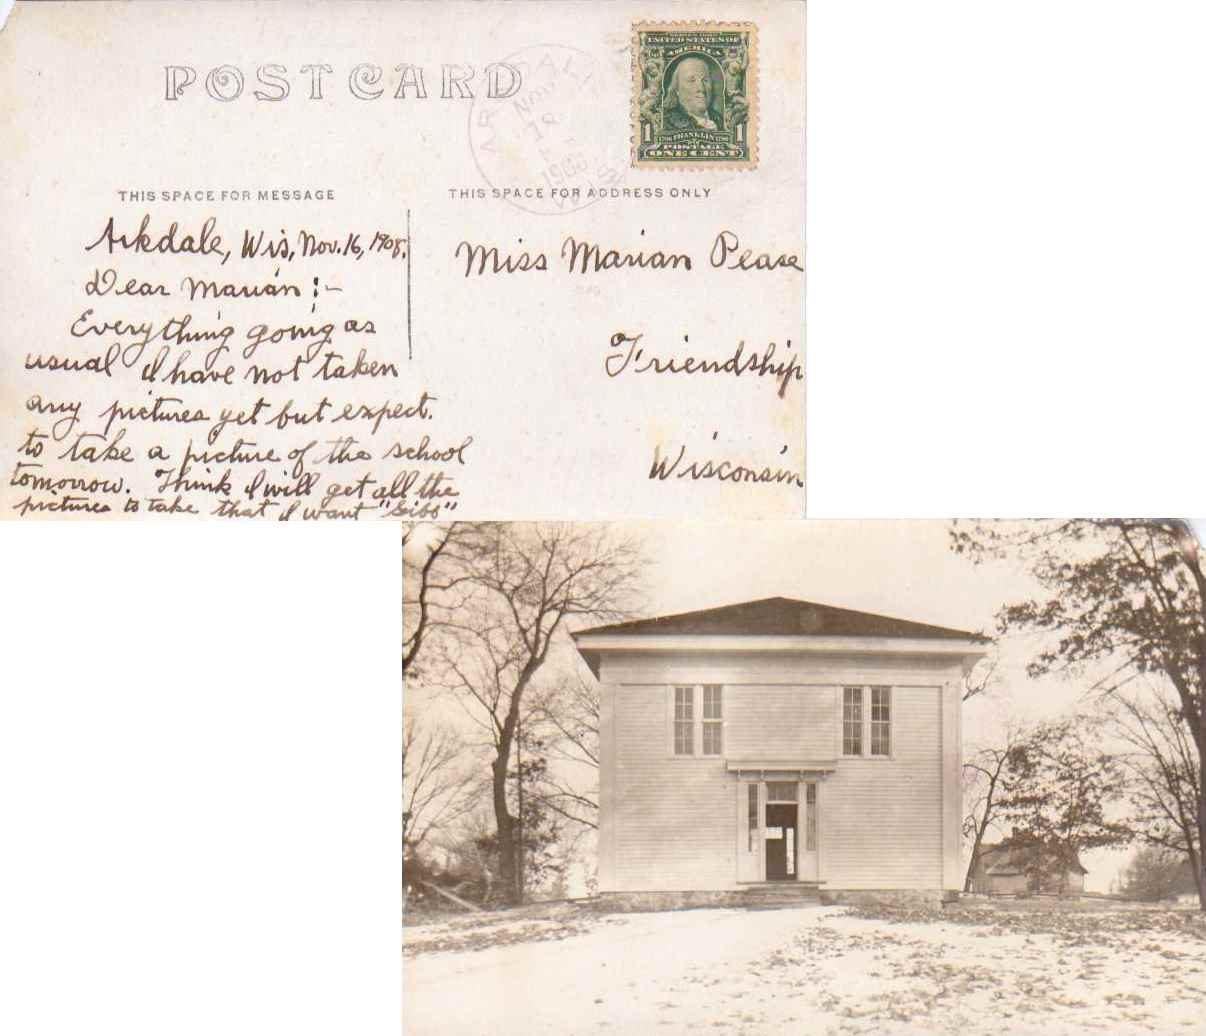 POSTCARD
ARKDALE
NOV
1908
WIS.
SERIES 1902
UNITED STATES OF
AMERICA
1 FRANKLIN 1
POSTAGE
ONE CENT
THIS SPACE FOR MESSAGE
THIS SPACE FOR ADDRESS ONLY
Arkdale, Wis, Nov. 16, 1908.
Dear Marian :-
Everything going as
usual I have not taken
any pictures yet but expect.
to take a picture of the school
tomorrow. Think I will get all the
pictures to take that I want "Gibs"
Miss Marian Pease
Friendship
Wisconsin